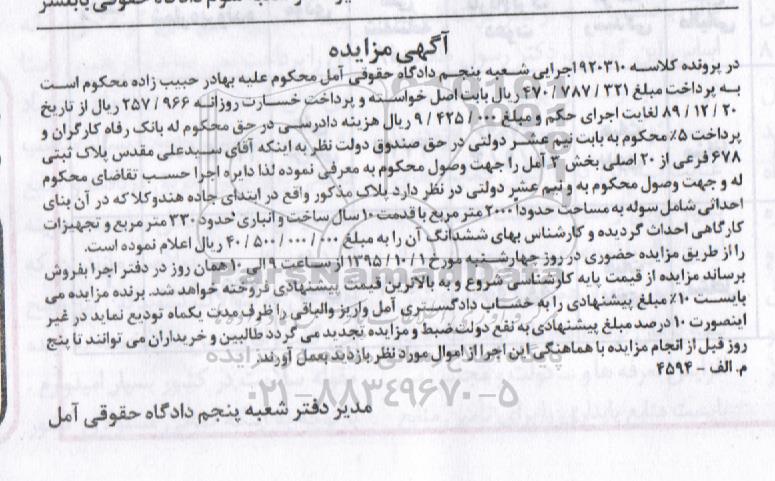 آگهی مزایده
در پرونده کلاسه ۹۲۰۳۱۰اجرایی شعبه پنجم دادگاه حقوقی آمل محکوم علیه بهادر حبیب زاده محکوم است
به پرداخت مبلغ ۳۲۱ / ۷۸۷ / ۴۷۰ ریال بابت اصل خواسته و پرداخت خسارت روزانه ۹۶۶ / ۲۵۷ ریال از تاریخ
۲۰ / ۱۲ / ۸۹ لغایت اجرای حکم و مبلغ ۰۰۰ / ۴۲۵ / ۹ ریال هزینه دادرسی در حق محکوم له بانک رفاه کارگران و
پرداخت ۵٪ محکوم به بابت نیم عشر دولتی در حق صندوق دولت نظر به اینکه آقای سیدعلی مقدس پلاک ثبتی
۶۷۸ فرعی از ۲۰ اصلی بخش ۲ آمل را جهت وصول محکوم به معرفی نموده لذا دایره اجرا حسب تقاضای محکوم
له و جهت وصول محکوم به و نیم عشر دولتی در نظر دارد پلاک مذکور واقع در ابتدای جاده هندوکلا که در آن بنای
احداثی شامل سوله به مساحت حدودا ۲۰۰۰ متر مربع با قدمت ۱۰ سال ساخت و انباری حدود ۳۳۰ متر مربع و تجهیزات
کارگاهی احداث گردیده و کارشناس بهای ششدانگ آن را به مبلغ ۰۰۰ / ۰۰۰ / ۵۰۰ / ۴۰ ریال اعلام نموده است.
را از طریق مزایده حضوری در روز چهارشنبه مورخ ۱ / ۱۰ / ۱۳۹۵ از ساعت ۹ الی ۱۰ همان روز در دفتر اجرا بفروش
برساند مزایده از قیمت پایه کارشناسی شروع و به بالاترین قیمت پیشنهادی فروخته خواهد شد. برنده مزایده می
بایست ۱۰٪ مبلغ پیشنهادی را به حساب دادگستری آمل واریز والباقی را ظرف مدت یکماه تودیع نماید در غیر
اینصورت ۱۰ درصد مبلغ پیشنهادی به نفع دولت ضبط و مزایده تجدید می گردد طالبین و خریداران می توانند تا پنج
روز قبل از انجام مزایده با هماهنگی این اجرا از اموال مورد نظر بازدید بعمل آورند
م. الف - ۴۵۹۴
مدیر دفتر شعبه پنجم دادگاه حقوقی آمل
ParsNamadData
۰۲۱-۸۸۳۴۹۶۷۰-۵